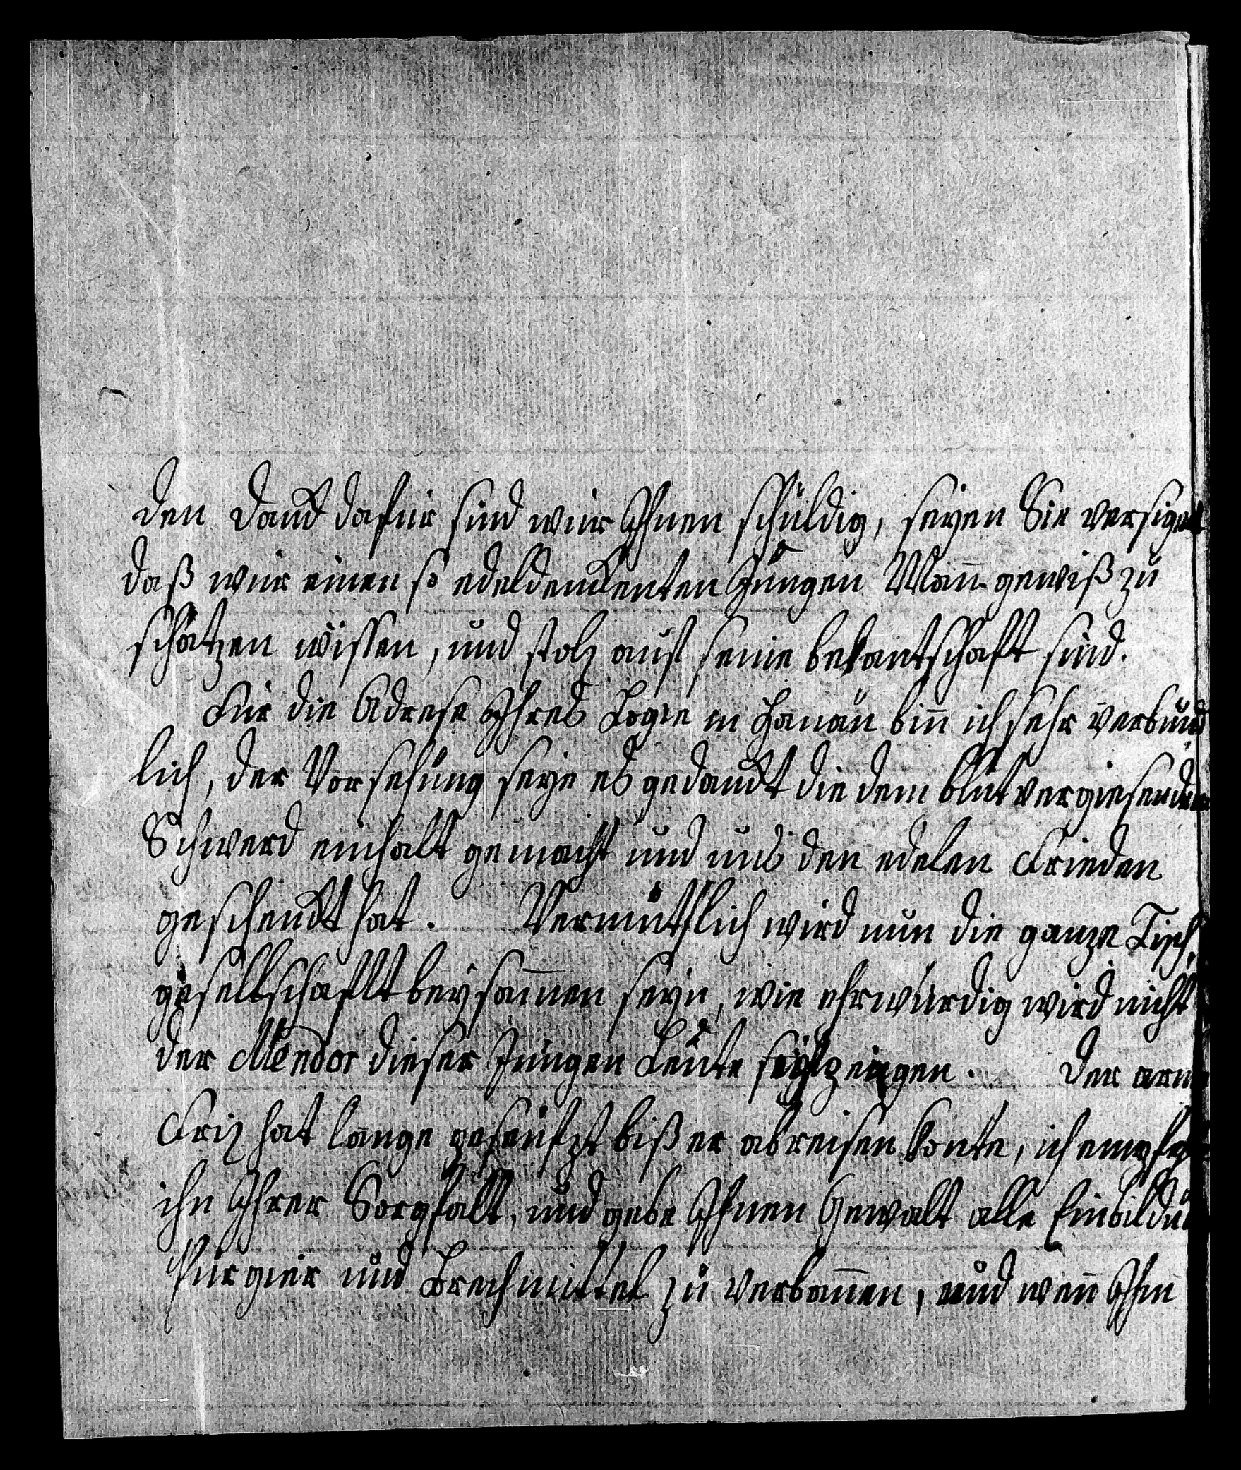 den danck dafür sind wür Ihnen schüldig, seyen Sie versigert
daß wür einen so edeldenckenten Jungen Mañ gewiß zu
schätzen wissen, und stolz auf seine bekantschaft sind.
Für die Adrese Ihres Logie in Hanau biñ ich sehr verbünd
lich, der Vorsehung seye es gedanckt die dem blut vergiesenden
Schwerd einhalt gemacht und uns den edelen Frieden
geschenckt hat. Vermüthlich wird nun die ganze Tisch
gesellschafft beysam̄en seyn, wie ehrwürdig wird nicht
der Mendor dieser Jungen Leute sich zeigen. Der arme
Friz hat lange geseufzt biß er abreisen konte, ich empfehl
ihn Ihrer Sorgfalt, und gebe Ihnen Gewalt alle Einbildu
Purgier und Brechmittel zu verbañen, und weñ Ihm